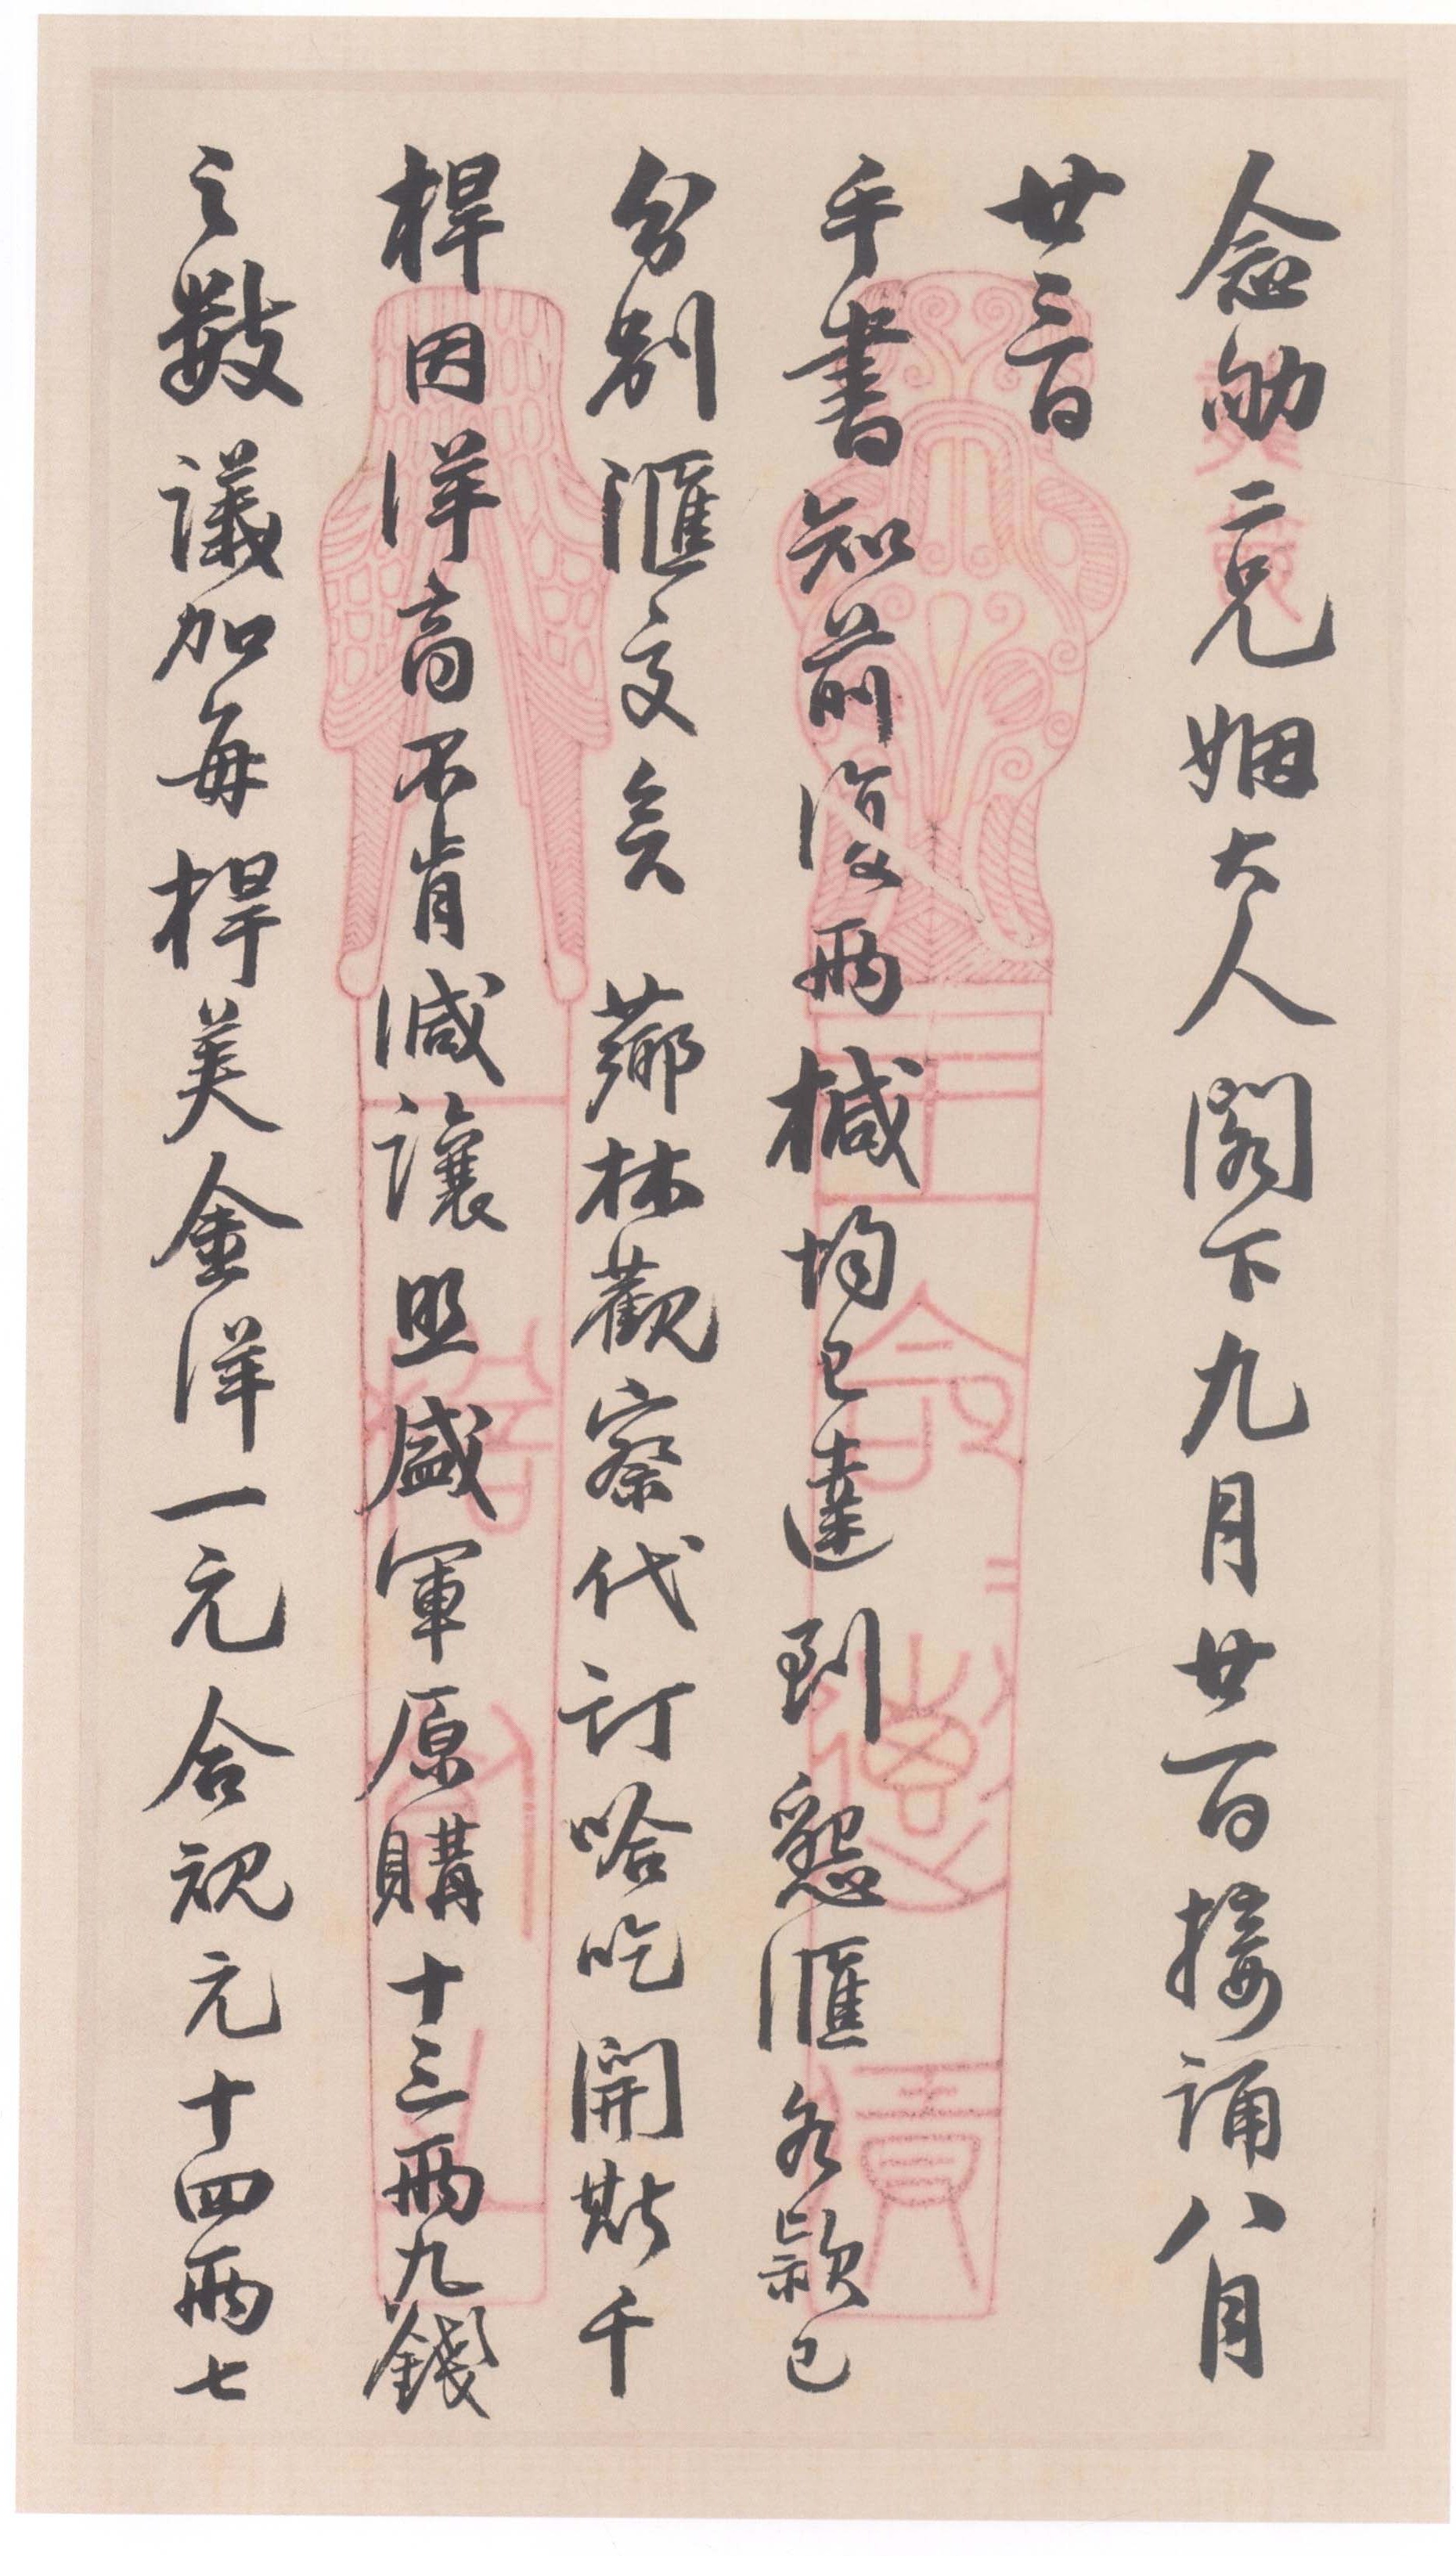 念劬二兄姻大人閣下九月廿一日接誦八月
廿三日
手書知前復兩椷均已達到懇匯各款已
分別匯交矣 薌林觀察代訂哈吃開斯千
桿因洋商不肯減讓照盛軍原購十三兩九錢
之數議加每桿美金洋一元合規元十四兩七